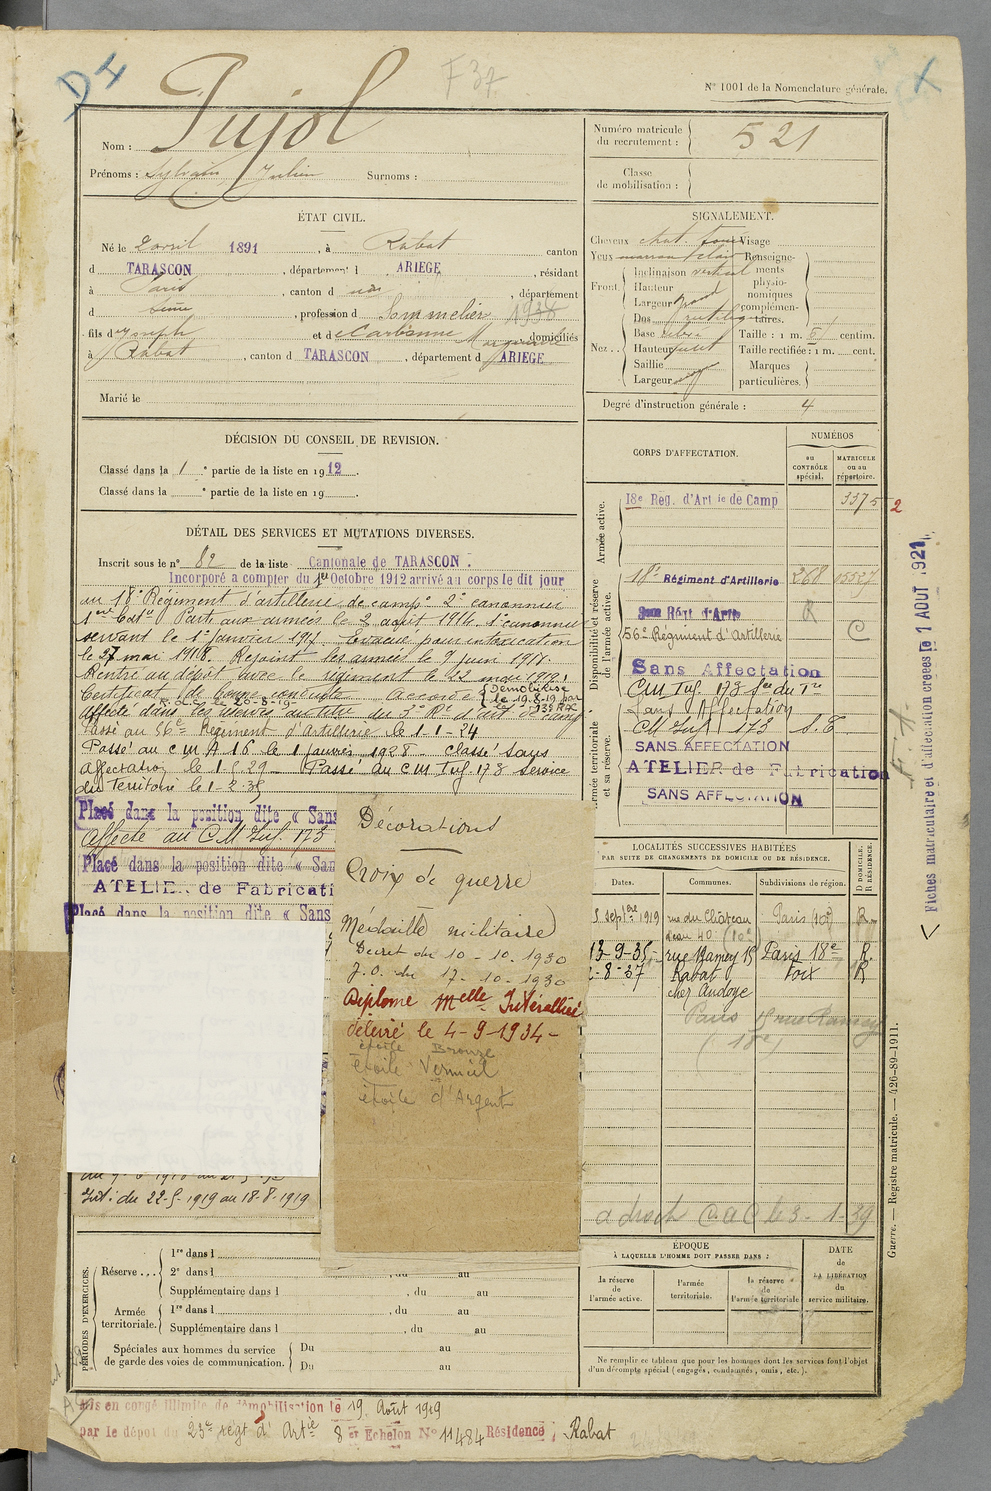 D I
F 37
N° 1001 de la Nomenclature générale.
Nom : Pujol
Prénoms : Sylvain Julien Surnoms :
Numéro matricule du recrutement : 521
Classe de mobilisation :
ÉTAT CIVIL.
Né le 2 avril 1891, à Rabat canton
d TARASCON, département d ARIEGE, résidant
à Paris, canton d , département
d Seine, profession d Sommelier 1938
fils d Joseph et de Carbonne Marguerite domiciliés
à Rabat, canton d TARASCON, département d ARIEGE
Marié le
SIGNALEMENT.
Cheveux chat. foncé Visage
Yeux marron clair Renseignements physionomiques complémentaires.
Front. Inclinaison vertical
Hauteur
Largeur grand
Nez.. Dos rectiligne
Base
Hauteur
Saillie
Largeur
Taille : 1 m. centim.
Taille rectifiée : 1 m. cent.
Marques particulières.
Degré d'instruction générale : 4
DÉCISION DU CONSEIL DE REVISION.
Classé dans la 1 e partie de la liste en 1912.
Classé dans la e partie de la liste en 19
DÉTAIL DES SERVICES ET MUTATIONS DIVERSES.
Inscrit sous le n° 82 de la liste Cantonale de TARASCON.
Incorporé à compter du 1er Octobre 1912 arrivé au corps le dit jour
au 18e Régiment d'artillerie de campe 2e canonnier
Parti aux armées le 2 août 1914. 1e canonnier
servant le 1er janvier 1917. Evacué pour intoxication
le 27 mai 1918. Rejoint les armées le 9 juin 1918.
Rentré au dépôt avec le régiment le 22 mai 1919.
Certificat de bonne conduite Accordé Démobilisé le 19.8.19 par
R.D.C. le 20-8-19
Affecté dans les réserves au titre du 3e Rt d'art de camp
Passé au 56e Régiment d'artillerie le 1-1-24
Passé au C M A 16 le 1 janvier 1928 Classé sans
affectation le 1-5-29 Passé au C M Inf. 173 service
du Territoire le 1-2-35
Placé dans la position dite « Sans
Affecté au C M Inf. 173
Placé dans la position dite « San
ATELIE. de Fabricati
Placé dans la position dite « Sans
Int : du 22-5-1919 au 18-8-1919
Décorations
Croix de guerre
Médaille militaire
Décret du 10-10-1930
J.O. du 17-10-1930
Diplome Melle Interalliée
délivré le 4-9-1934 -
étoile Bronze
étoile Vermeil
étoile d'Argent
CORPS D'AFFECTATION.
NUMÉROS
au CONTRÔLE spécial.
MATRICULE ou au répertoire.
Armée active.
18e Rég. d'Artie de Camp 3375 2
Disponibilité et réserve de l'armée active.
18e Régiment d'Artillerie 268 15527
R
56e Régiment d'Artillerie C
Sans Affectation
CM Inf. 173 Sce du Tre
Sans Affectation
Armée territoriale et sa réserve.
CM Inf 173 S.T.
SANS AFFECTATION
ATELIER de Fabrication
SANS AFFECTATION
LOCALITÉS SUCCESSIVES HABITÉES
PAR SUITE DE CHANGEMENTS DE DOMICILE OU DE RÉSIDENCE.
Dates. Communes. Subdivisions de région. D DOMICILE. R RÉSIDENCE.
septbre 1919 rue du Château d'eau 40 (10e) Paris (10e) R.
13-9-35 rue Ramey 15 Paris 18e R.
-8-37 Rabat Foix R
chez Audoye
Paris 15 rue Ramey
(18e)
a droit C a C le 3-1-39
ÉPOQUE
À LAQUELLE L'HOMME DOIT PASSER DANS :
la réserve de l'armée active.
l'armée territoriale.
la réserve de l'armée territoriale
DATE de LA LIBÉRATION du service militaire.
Ne remplir ce tableau que pour les hommes dont les services font l'objet d'un décompte spécial (engagés, condamnés, omis, etc.).
PÉRIODES D'EXERCICES.
Réserve ... 1re dans l
2e dans l , du au
Supplémentaire dans l , du au
Armée territoriale. 1re dans l , du au
Supplémentaire dans l , du au
Spéciales aux hommes du service de garde des voies de communication. Du au
Du au
Mis en congé illimité de démobilisation le 19 Août 1919
par le dépôt du 23e régt d'Artie 8e Echelon N° 11484 Résidence ; Rabat
Fiches matriculaire et d'affectation créées le 1 AOUT 1921
Guerre. — Registre matricule. — 426-89-1911.